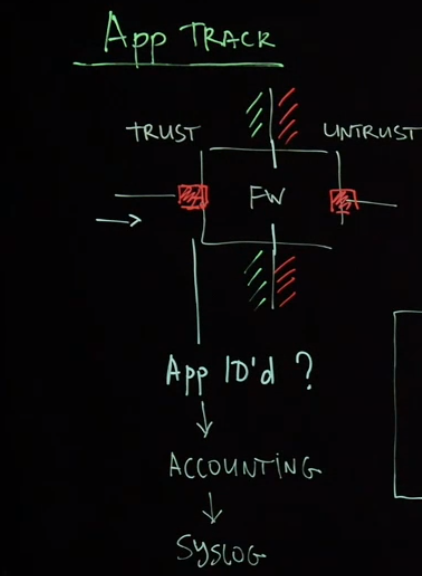 App TRACK
TRUST UNTRUST
FW
App ID'd ?
ACCOUNTING
SYSLOG